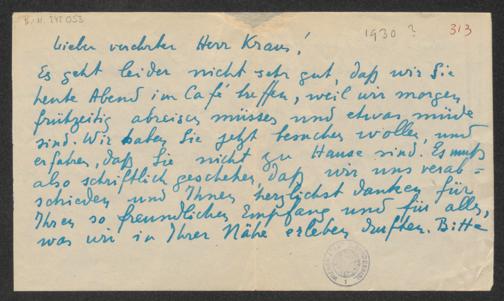 B. H. 241 053
1930 ?
313
Lieber verehrter Herr Kraus!
Es geht leider nicht sehr gut, daß wir Sie
heute Abend im Café treffen, weil wir morgen
frühzeitig abreisen müssen und etwas müde
sind. Wir haben Sie jetzt besuchen wollen, und
erfahren, daß Sie nicht zu Hause sind. Es muß
also schriftlich geschehen, daß wir uns verab=
schieden und Ihnen herzlichst danken für
Ihren so freundlichen Empfang und für alles,
was wir in Ihrer Nähe erleben durften. Bitte